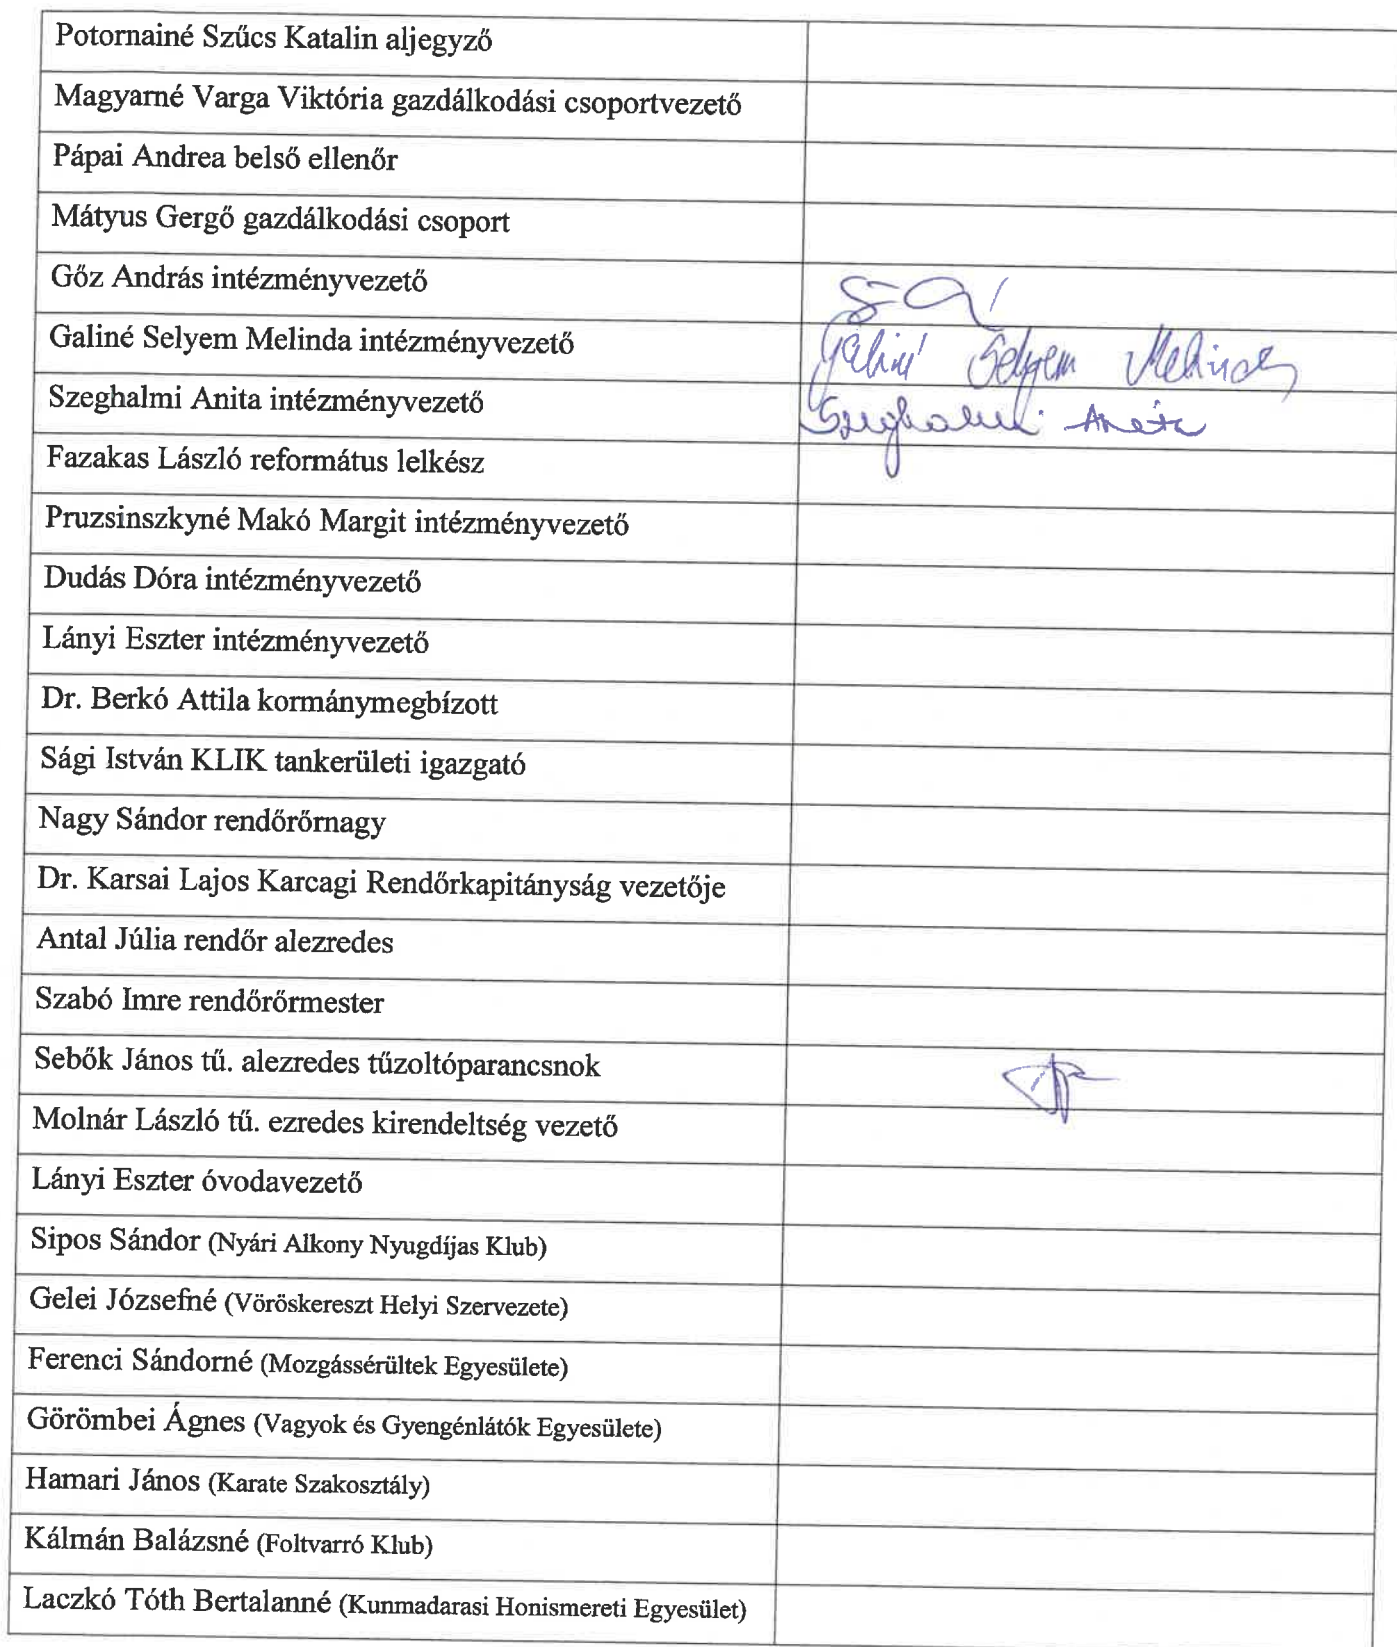 Potornainé Szűcs Katalin aljegyző
Magyarné Varga Viktória gazdálkodási csoportvezető
Pápai Andrea belső ellenőr
Mátyus Gergő gazdálkodási csoport
Gőz András intézményvezető
Galiné Selyem Melinda intézményvezető
Galiné Selyem Melinda
Szeghalmi Anita intézményvezető
Szeghalmi Anita
Fazakas László református lelkész
Pruzsinszkyné Makó Margit intézményvezető
Dudás Dóra intézményvezető
Lányi Eszter intézményvezető
Dr. Berkó Attila kormánymegbízott
Sági István KLIK tankerületi igazgató
Nagy Sándor rendőrőrnagy
Dr. Karsai Lajos Karcagi Rendőrkapitányság vezetője
Antal Júlia rendőr alezredes
Szabó Imre rendőrőrmester
Sebők János tű. alezredes tűzoltóparancsnok
Molnár László tű. ezredes kirendeltség vezető
Lányi Eszter óvodavezető
Sipos Sándor (Nyári Alkony Nyugdíjas Klub)
Gelei Józsefné (Vöröskereszt Helyi Szervezete)
Ferenci Sándorné (Mozgássérültek Egyesülete)
Görömbei Ágnes (Vagyok és Gyengénlátók Egyesülete)
Hamari János (Karate Szakosztály)
Kálmán Balázsné (Foltvarró Klub)
Laczkó Tóth Bertalanné (Kunmadarasi Honismereti Egyesület)